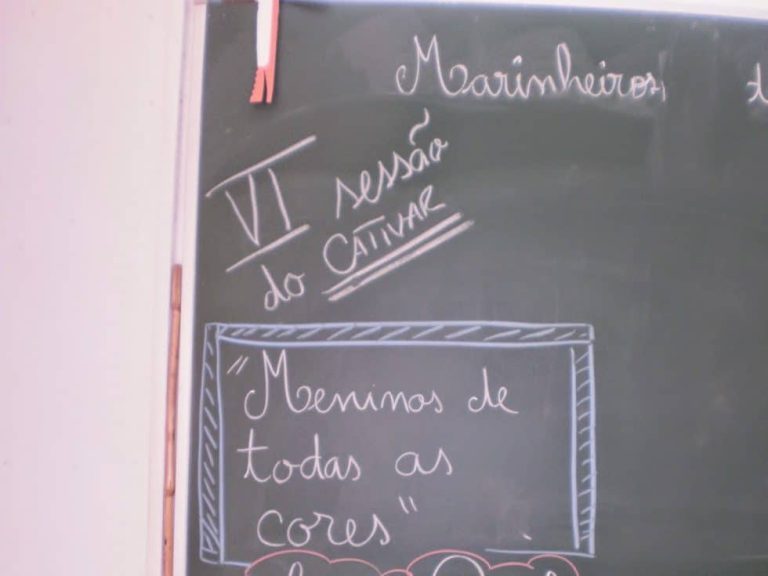 Marinheiros,
VI sessão
do CATIVAR
"Meninos de
todas as
cores"